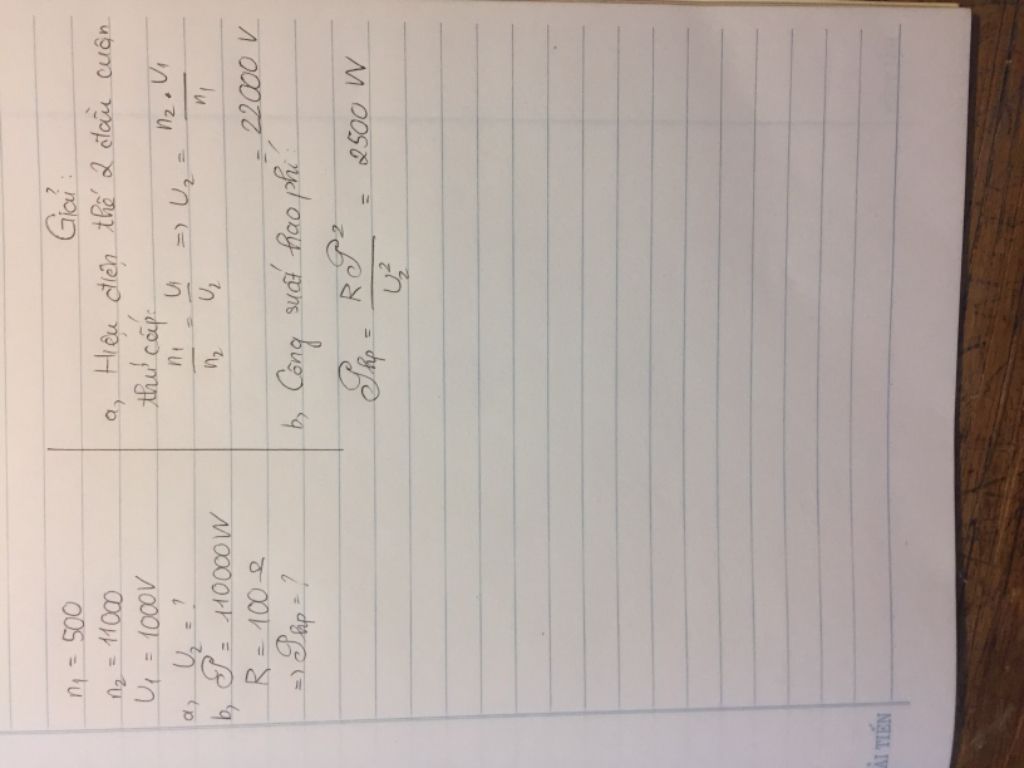 n₁ = 500
n₂ = 11000
U₁ = 1000V
a, U₂ = ?
b, P = 110000W
R = 100 Ω
=> Php = ?
Giải:
a, Hiệu điện thế 2 đầu cuộn
thứ cấp:
n₁/n₂ = U₁/U₂ => U₂ = n₂.U₁/n₁
= 22000 V
b, Công suất hao phí:
Php = RP²/U₂² = 2500 W
ẢI TIẾN